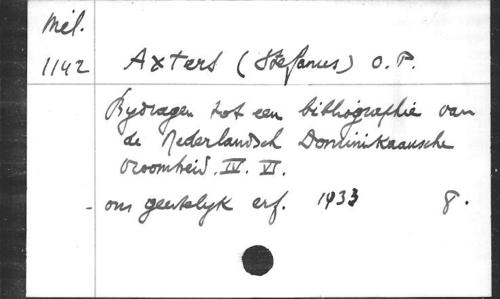 Mél.
1142 Axters (Stefanus) O.P.
Bydragen tot een bibliographie van
de Nederlandsch Dominikaansche
vroomheid. IV. VI.
- ons geestelyk erf. 1933 8.